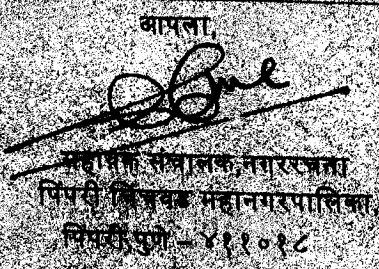 आपला,
सहाय्यक संचालक,नगररचना
पिंपरी चिंचवड महानगरपालिका,
पिंपरी,पुणे – ४११०१८